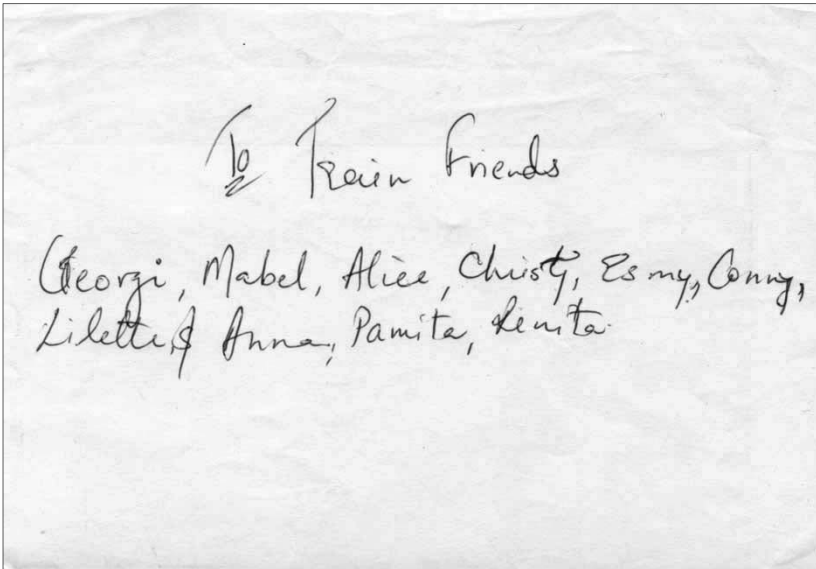 To Train Friends
Georgi, Mabel, Alice, Christy, Esmy, Conny,
Lilette, & Anna, Pamita, Renita.